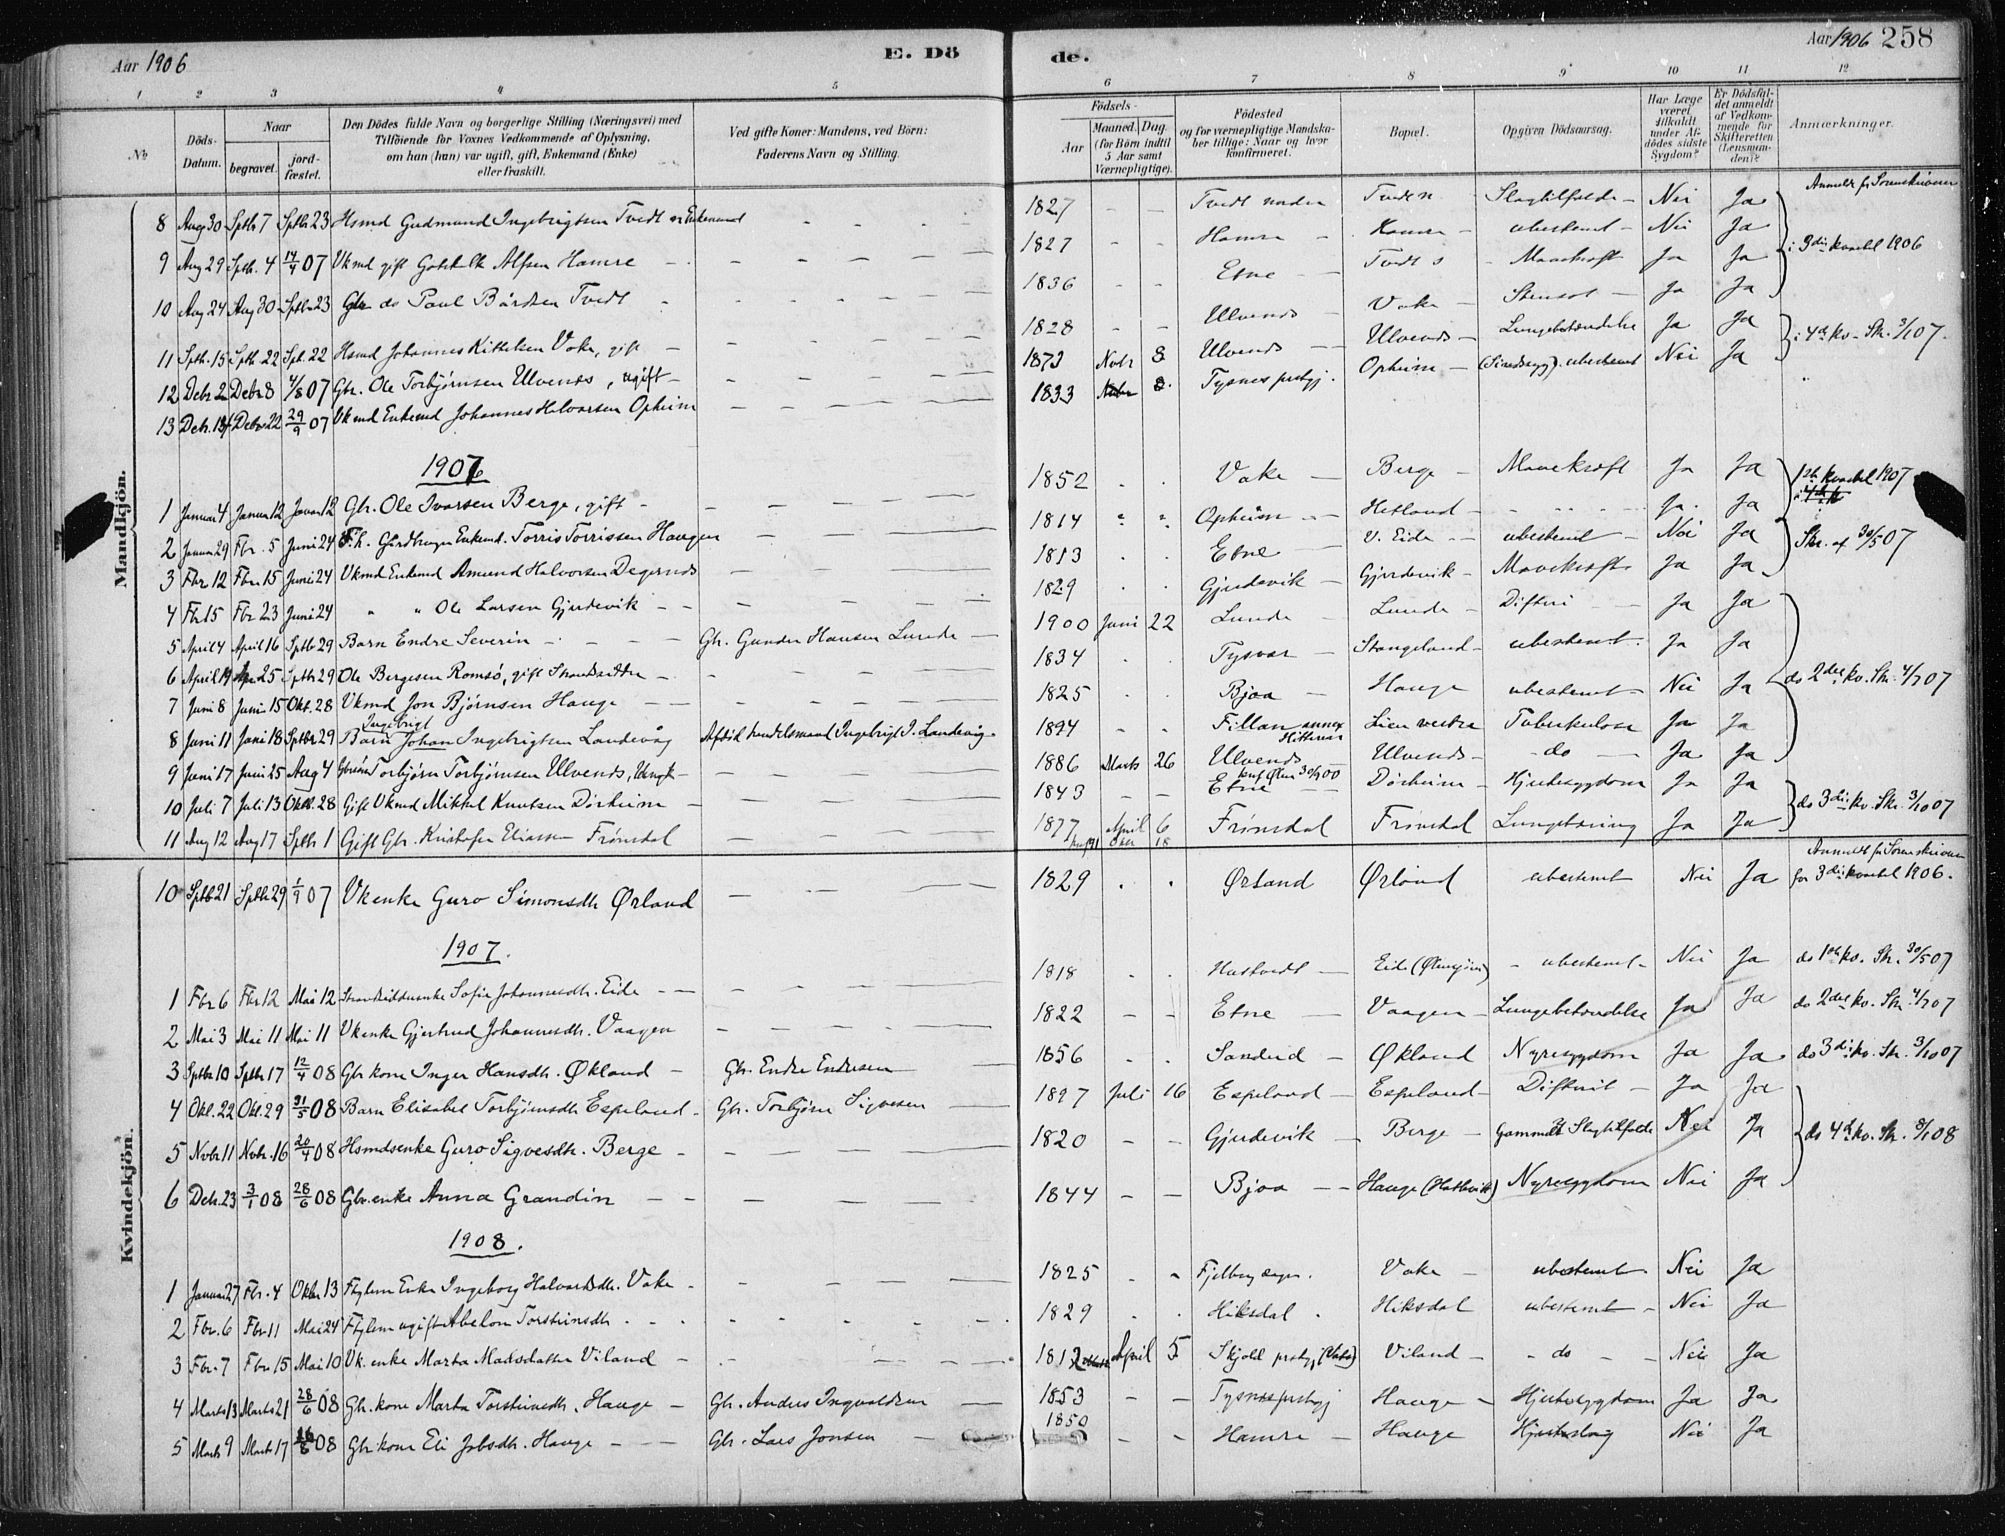 Aar 1906 E. Dö de. Aar 1906 258
1 2 3 4 5 6 7 8 9 10 11 12
No
Döds-Datum.
Naar
begravet. jord-fæstet.
Den Dödes fulde Navn og borgerlige Stilling (Næringsvei) med
Tilföiende for Voxnes Vedkommende af Oplysning,
om han (hun) var ugift, gift, Enkemand (Enke)
eller fraskilt.
Ved gifte Koner: Mandens, ved Börn:
Faderens Navn og Stilling.
Födsels-
Aar Maaned. Dag.
(for Börn indtil
5 Aar samt
Værnepligtige).
Födested
og for værnepligtige Mandska-
ber tillige: Naar og hvor
konfirmeret.
Bopæl.
Opgiven Dödsaarsag.
Har Læge
været
tilkaldt
under Af-
dödes sidste
Sygdom?
Er Dödsfal-
det anmeldt
af Vedkom-
mende for
Skifteretten
(Lensman-
den)?
Anmærkninger.
Mandkjön.
8 Aug 30 Sptbr 7 Sptbr 23 Hsmd Gudmund Ingebrigtsen Tvedt Enkemand 1827 Tvedt Tvedt Slagtilfælde Nei Ja
9 Aug 29 Sptb. 4 07 Vkmd gift Gotskalk Alfsen Hamre 1827 Hamre Hamre ubestemt Nei Ja i 3die kvartal 1906
10 Aug 24 Aug 30 Sptbr 23 Gbr do Paul Bårdsen Tvedt 1836 Etne Tvedt Mavekræft Ja Ja
11 Sptb. 15 Sptb 22 Spt. 22 Hsmd Johannes Kittelsen Vake, gift 1828 Ulvenes Vake Ja Ja
12 Debr 2 Debr 8 4/8 07 Gbr. Ole Torbjørnsen Ulvenes, ugift 1873 Nvbr 8 Ulvenes Ulvenes Lungebetændelse Ja Ja i 4de kv. Skr. 3/1 07.
13 Debr. 14 Debr 22 29/9 07 Vkmd Enkemd Johannes Halvorsen Opheim 1833 Tysnes prstgj. Opheim ubestemt Nei Ja
1907
1 Januar 4 Januar 12 Januar 12 Gbr. Ole Ivarsen Berge, gift 1852 Vake Berge Mavekræft Ja Ja 1ste kvartal 1907
2 Januar 29 Fbr. 5 Juni 24 F.h. Enkemd. Torris Torrissen Haugen 1814 Opheim Hetland Ja Ja
3 Fbr 12 Fbr 15 Juni 24 Vkmd Enkemd Amund Halvorsen Degernes 1813 Etne V. Eide ubestemt Nei Ja Skr. af 30/5 07
4 Fbr 15 Fbr 23 Juni 24 " " Ole Larsen Gjerdevik 1829 Gjerdevik Gjerdevik Mavekræft Ja Ja
5 April 4 April 16 Sptb 29 Barn Endre Severin Gbr. Gunder Hansen Lunde 1900 Juni 22 Lunde Lunde Difteri Ja Ja
6 April 19 Apr 25 Sptbr 29 Ole Bergesen Romsø, gift Strandsidder 1834 Tysvær Stangeland ubestemt Ja Ja
7 Juni 8 Juni 15 Okt. 28 Vkmd Jon Bjørnsen Hauge 1825 Bjoa Hauge ubestemt Nei Ja do 2det kv. Skr. 4/7 07
8 Juni 11 Juni 18 Sptbr 29 Barn Ingebrigt Johan Ingebrigtsen Landevåg Afdød handelsmand Ingebrigt I. Landevåg 1894 Fillan annex Hitteren Lien vestre Tuberkulose Ja Ja
9 Juni 17 Juni 25 Aug 4 Torbjørn Torbjørnsen Ulvenes, Ungk 1886 Marts 26 Ulvenes Ulvenes do Ja Ja
10 Juli 7 Juli 13 Oktb. 28 Gift Vkmd Mikkel Knutsen Dørheim 1843 Etne Dørheim Hjertesygdom Ja Ja do 3die kv. Skr. 3/10 07
11 Aug 12 Aug 17 Sptbr 1 Gift Gbr. Kristofer Eliassen Frønsdal 1877 April 6 Frønsdal Frønsdal Lungetæring Ja Ja
Kvindekjön.
10 Sptb 21 Sptb 29 1/9 07 Vkenke Guro Simonsdtr Ørland 1829 Ørland Ørland ubestemt Nei Ja Anmeldt for Sorenskriveren for 3die kvartal 1906.
1907.
1 Fbr. 6 Fbr 12 Mai 12 Strandsidderenke Sofie Johannesdtr. Eide 1818 Hustvedt Eide (Ølensjøen) ubestemt Nei Ja do 1ste kv. Skr. 30/5 07
2 Mai 3 Mai 11 Mai 11 Vkenke Gjertrud Johannesdtr. Vaagen 1822 Etne Vaagen Lungebetændelse Ja Ja do 2det kv. Skr. 4/7 07
3 Sptbr 10 Sptbr 17 12/4 08 Gbr kone Inger Hansdtr. Økland Gbr. Endre Endresen 1856 Sandeid Økland Nyresygdom Ja Ja do 3die kv. Skr. 3/10 07
4 Okt. 22 Okt. 29 31/5 08 Barn Elisabet Torbjørnsdtr Espeland Gbr. Torbjørn Sigvesen 1897 Juli 16 Espeland Espeland Difterit Ja Ja
5 Nvbr 11 Nvbr. 16 20/4 08 Hsmdsenke Guro Sigvesdtr. Berge 1820 Gjerdevik Berge gammelt Slagtilfælde Nei Ja do 4de kv. Skr. 3/1 08
6 Debr. 23 3/1 08 28/6 08 Gbr. enke Anna Grandin 1844 Bjoa Hauge Nyresygdom Nei Ja
1908.
1 Januar 27 Fbr. 4 Oktbr 13 Fhglem Enke Ingeborg Halvorsdtr. Vake 1825 Fjelberg Vake ubestemt Nei Ja
2 Fbr. 6 Fbr 11 Mai 24 Fhglem ugift Abelone Torsteinsdtr 1829 Hiksdal Hiksdal ubestemt Nei Ja
3 Fbr. 7 Fbr 15 Mai 10 Vk. enke Marta Madsdatter Viland 1812 April 5 Skjold prstgj Viland do Nei Ja
4 Marts 13 Marts 21 28/6 08 Gbr. kone Marta Torsteinsdtr. Hauge Gbr. Anders Ingvaldsen 1853 Tysnes prstgj Hauge Hjertesygdom Ja Ja
5 Marts 9 Marts 17 08 Gbr kone Eli Jobsdtr. Hauge Gbr. Lars Jonsen 1850 Hamre Hauge Hjerteslag Nei Ja